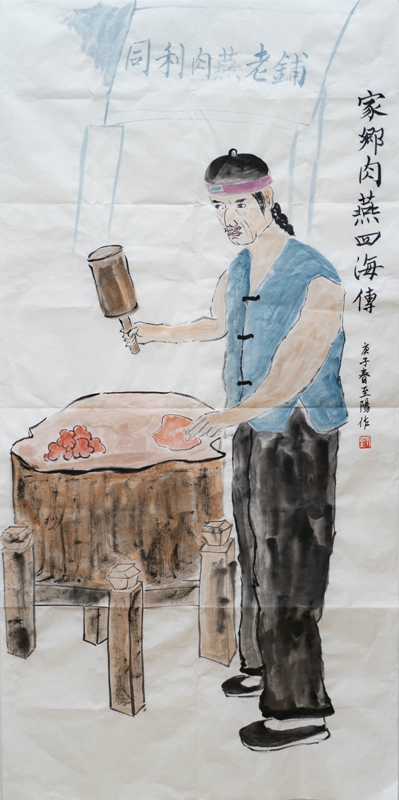 同利肉燕老鋪
家鄉肉燕四海傳
庚子春至陽作